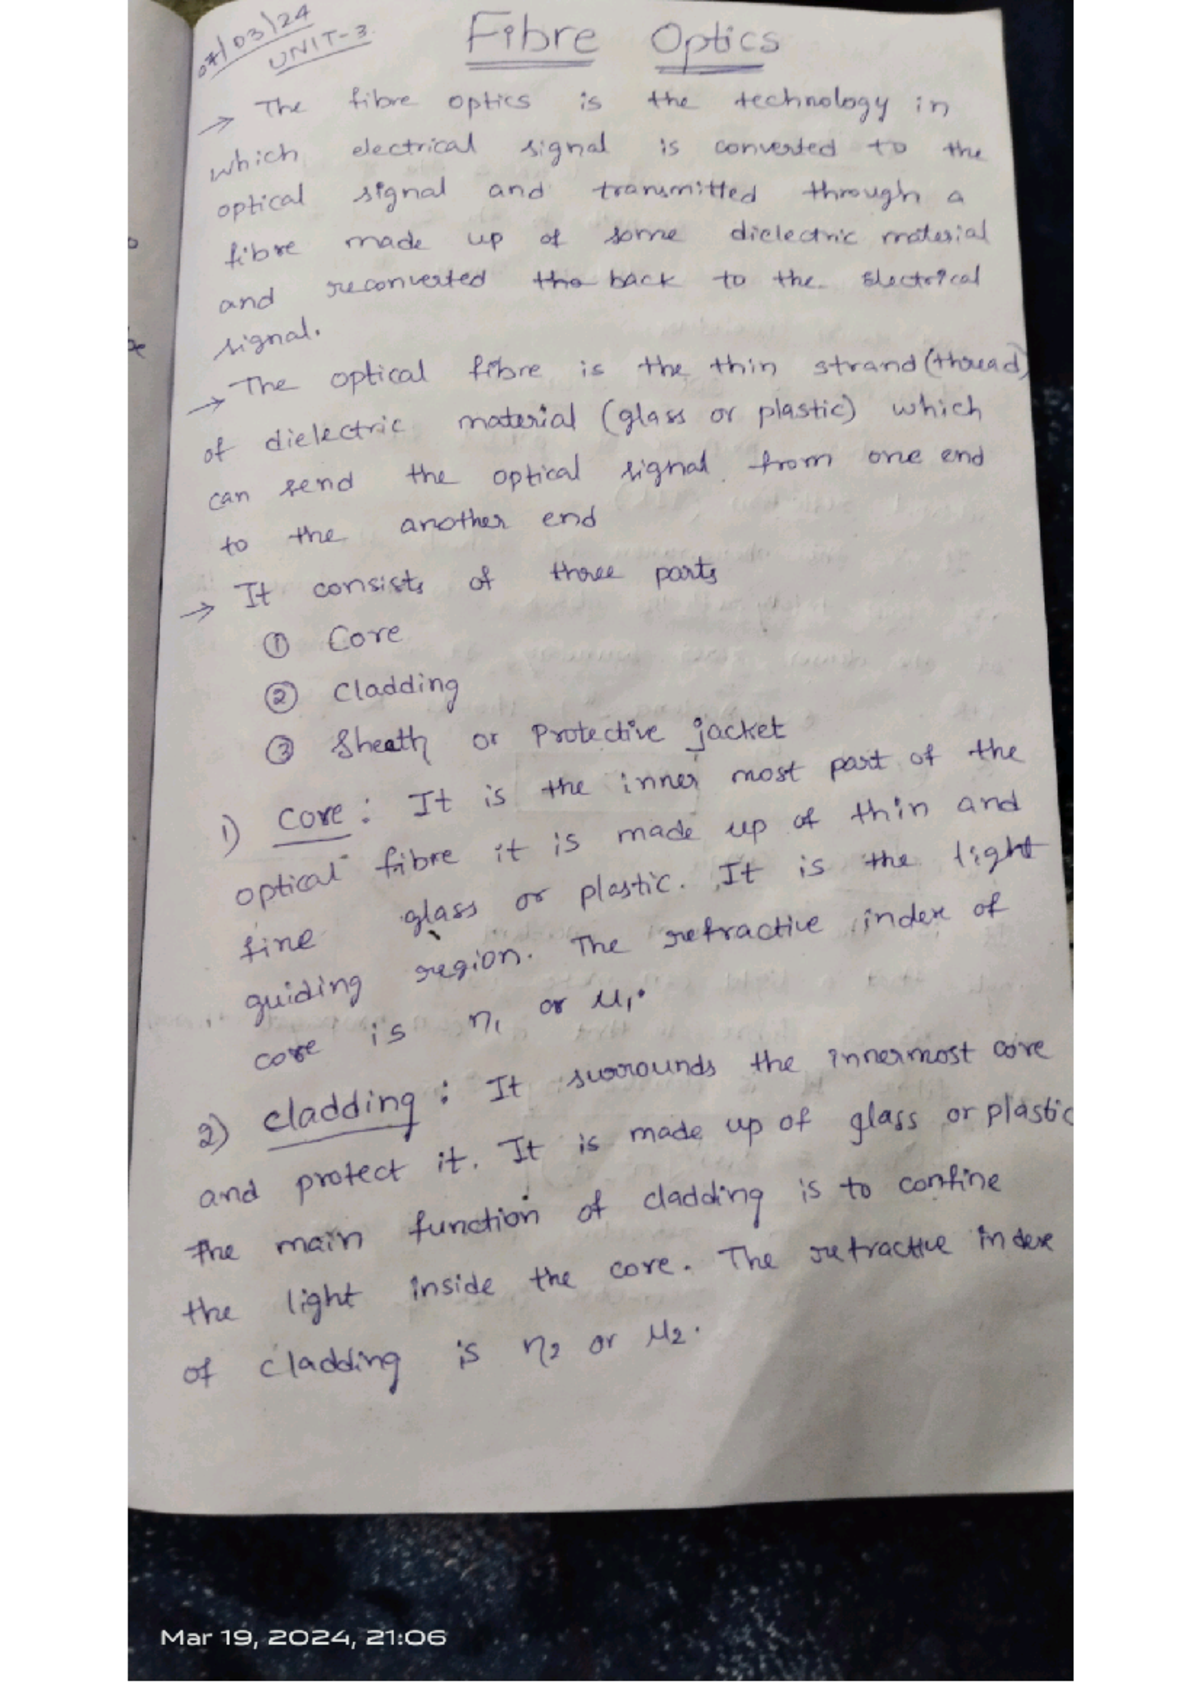 07/03/24
UNIT-3
Fibre Optics
→ The fibre optics is the technology in
which electrical signal is converted to the
optical signal and transmitted through a
fibre made up of some dielectric material
and reconverted the back to the Electrical
signal.
→ The optical fibre is the thin strand (thread)
of dielectric material (glass or plastic) which
can send the optical signal from one end
to the another end
→ It consists of three parts
① Core
② Cladding
③ Sheath or Protective jacket
1) Core : It is the inner most part of the
optical fibre it is made up of thin and
fine glass or plastic. It is the light
guiding region. The refractive index of
core is η₁ or μ₁.
2) Cladding : It surrounds the innermost core
and protect it. It is made up of glass or plastic
The main function of cladding is to confine
the light inside the core. The refractive index
of cladding is η₂ or μ₂.
Mar 19, 2024, 21:06